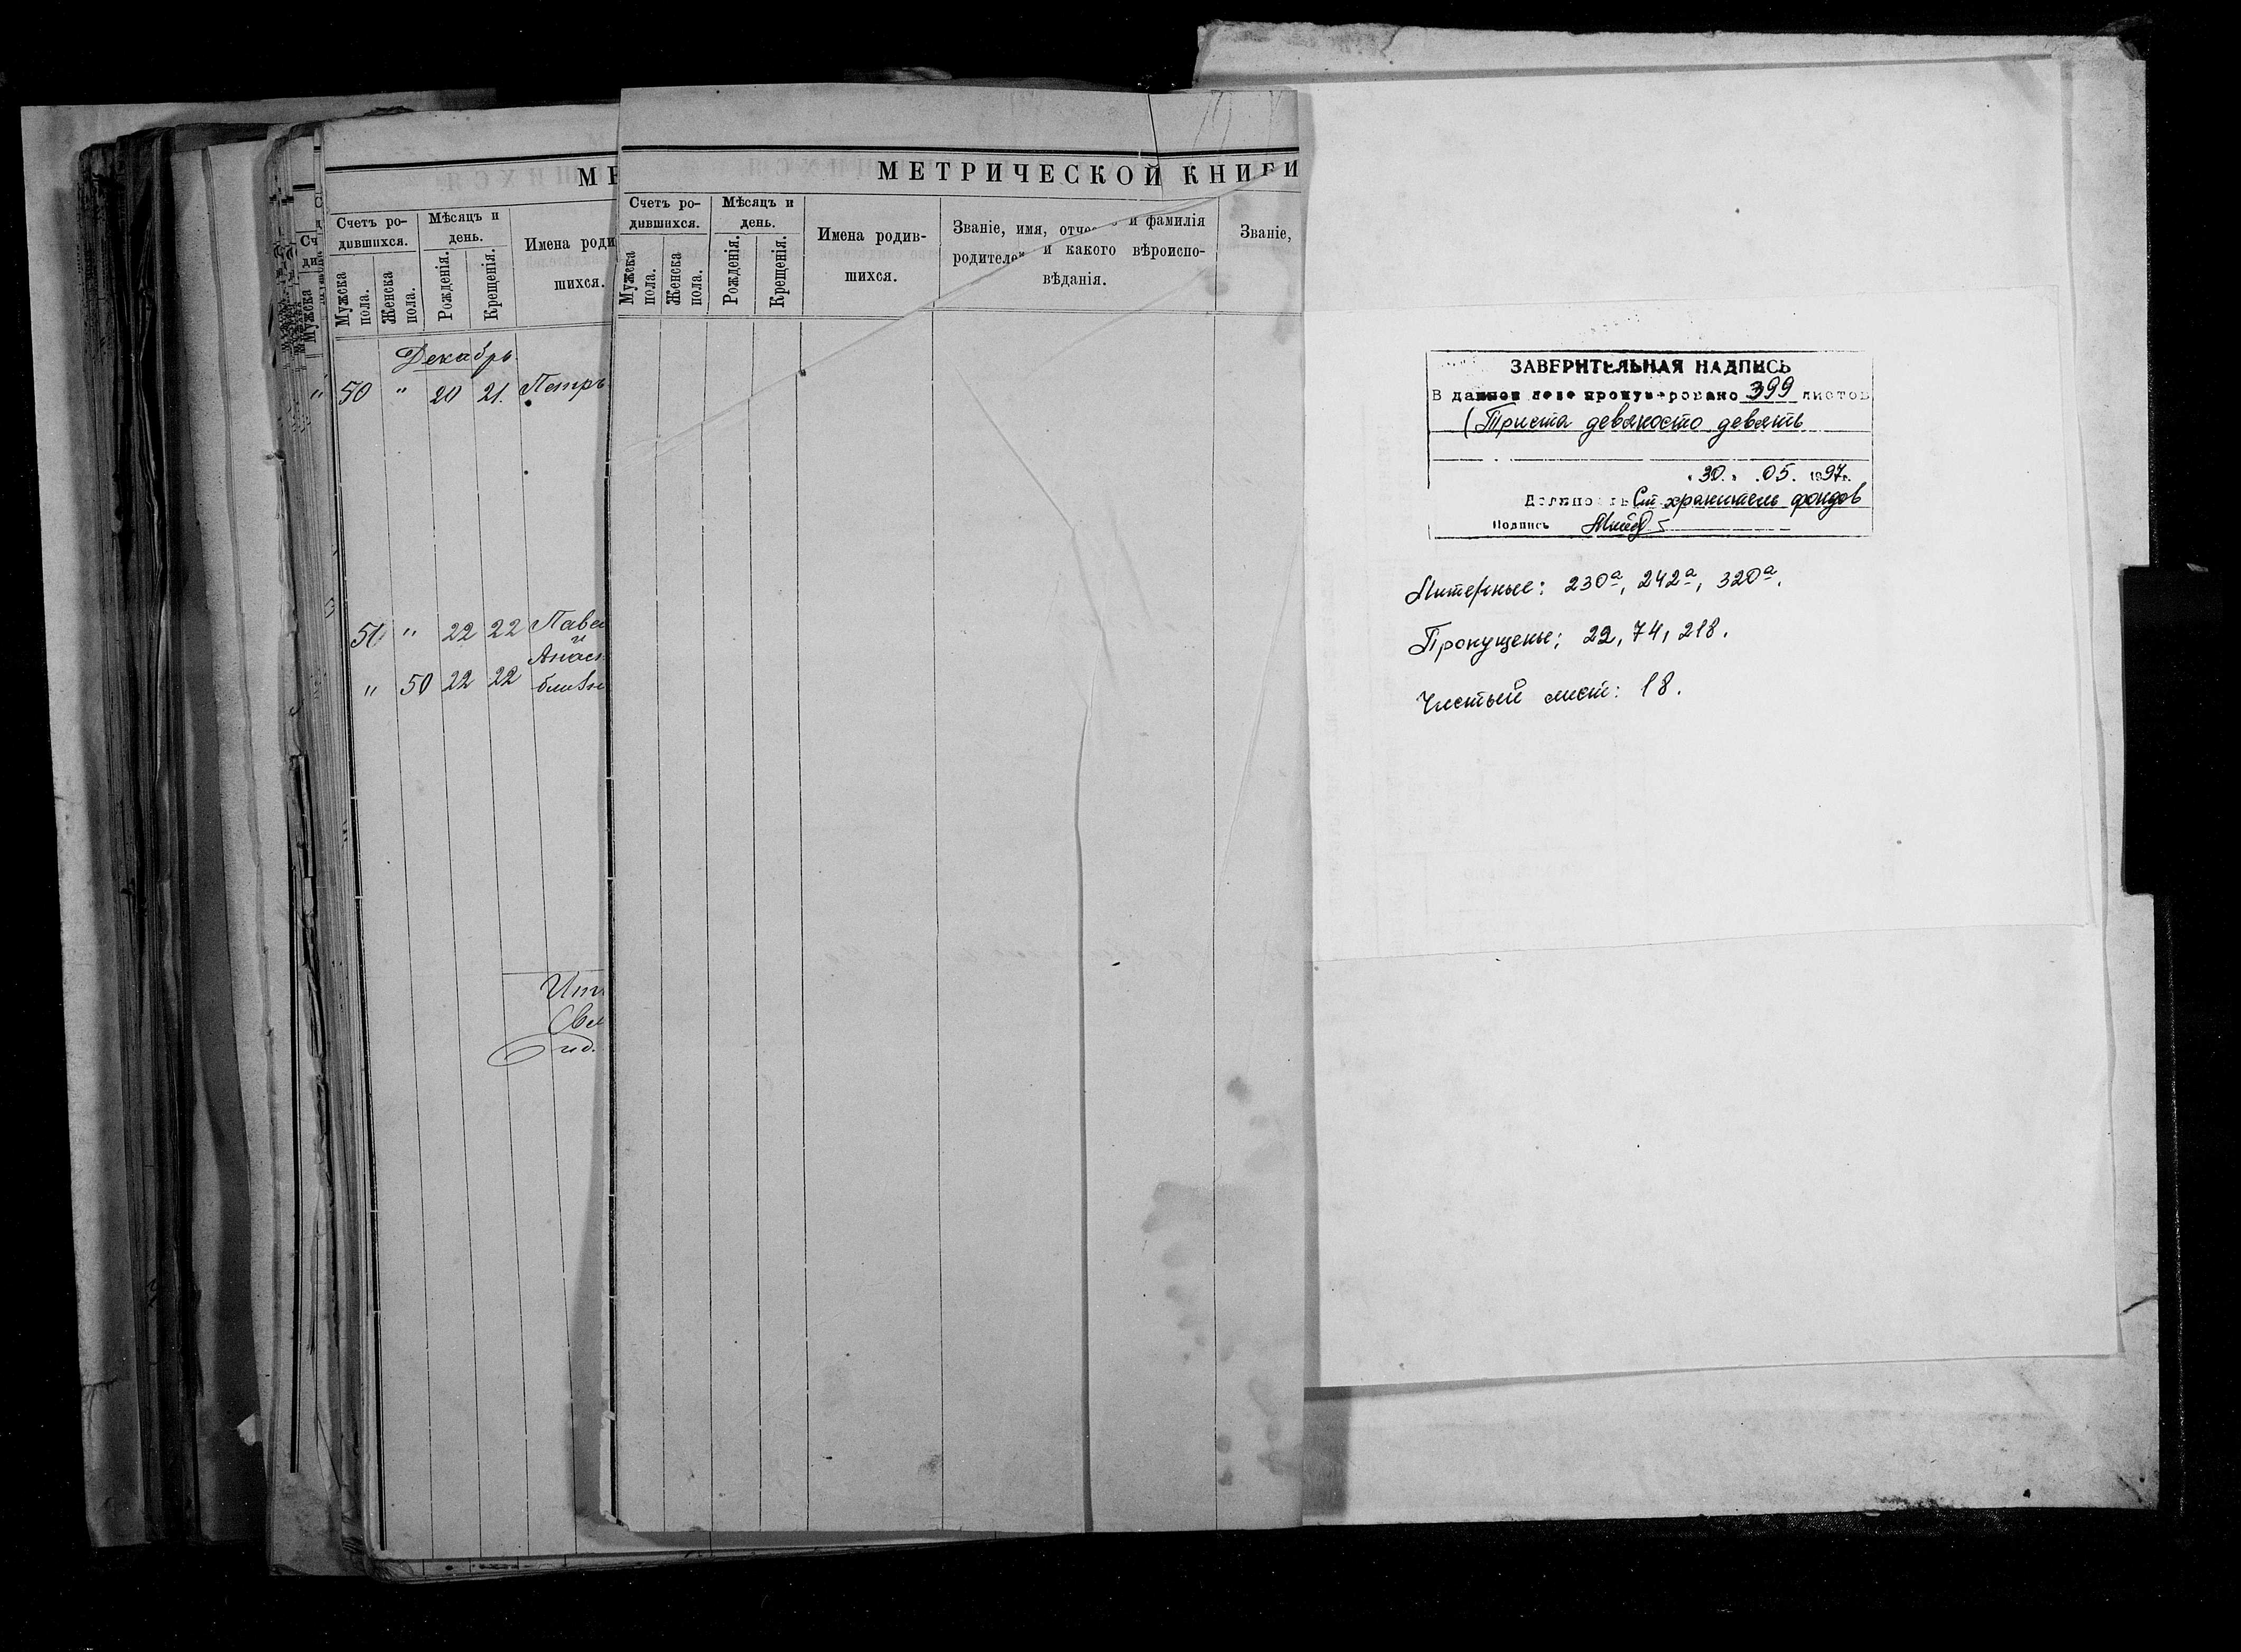 МЕ
Счетъ ро-
дившихся.
Мѣсяцъ и
день.
Имена роди
шихся.
Мужска
пола.
Женска
пола.
Рожденія.
Крещенія.
Декабрь
50 " 20 21. Петръ
51 " 22 22 Паве
и
Анаст
" 50 22 22 близн
МЕТРИЧЕСКОЙ КНИГИ
Счетъ ро-
дившихся.
Мѣсяцъ и
день.
Имена родив-
шихся.
Званіе, имя, отче и фамилія
родителей и какого вѣроиспо-
вѣданія.
Званіе,
Мужска
пола.
Женска
пола.
Рожденія.
Крещенія.
ЗАВЕРИТЕЛЬНАЯ НАДПИСЬ
В данном деле пронумеровано 399 листов
(Триста девяносто девять
"30" .05. 1997г.
Должность Ст. хранитель фондов
Подпись
Литерные: 230а, 242а, 320а.
Пропущены: 22, 74, 218.
Чистый лист: 18.